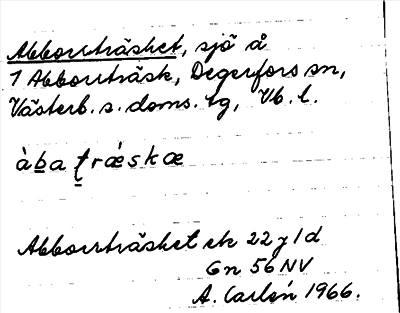 Abborrträsket, sjö å
1 Abborrträsk, Degerfors sn,
Västerb. s. doms. tg, Vb. l.
àb̲a t̲rǽskæ
Abborrträsket ek 22 y 1 d
Gn 56 NV
A. Carlén 1966.